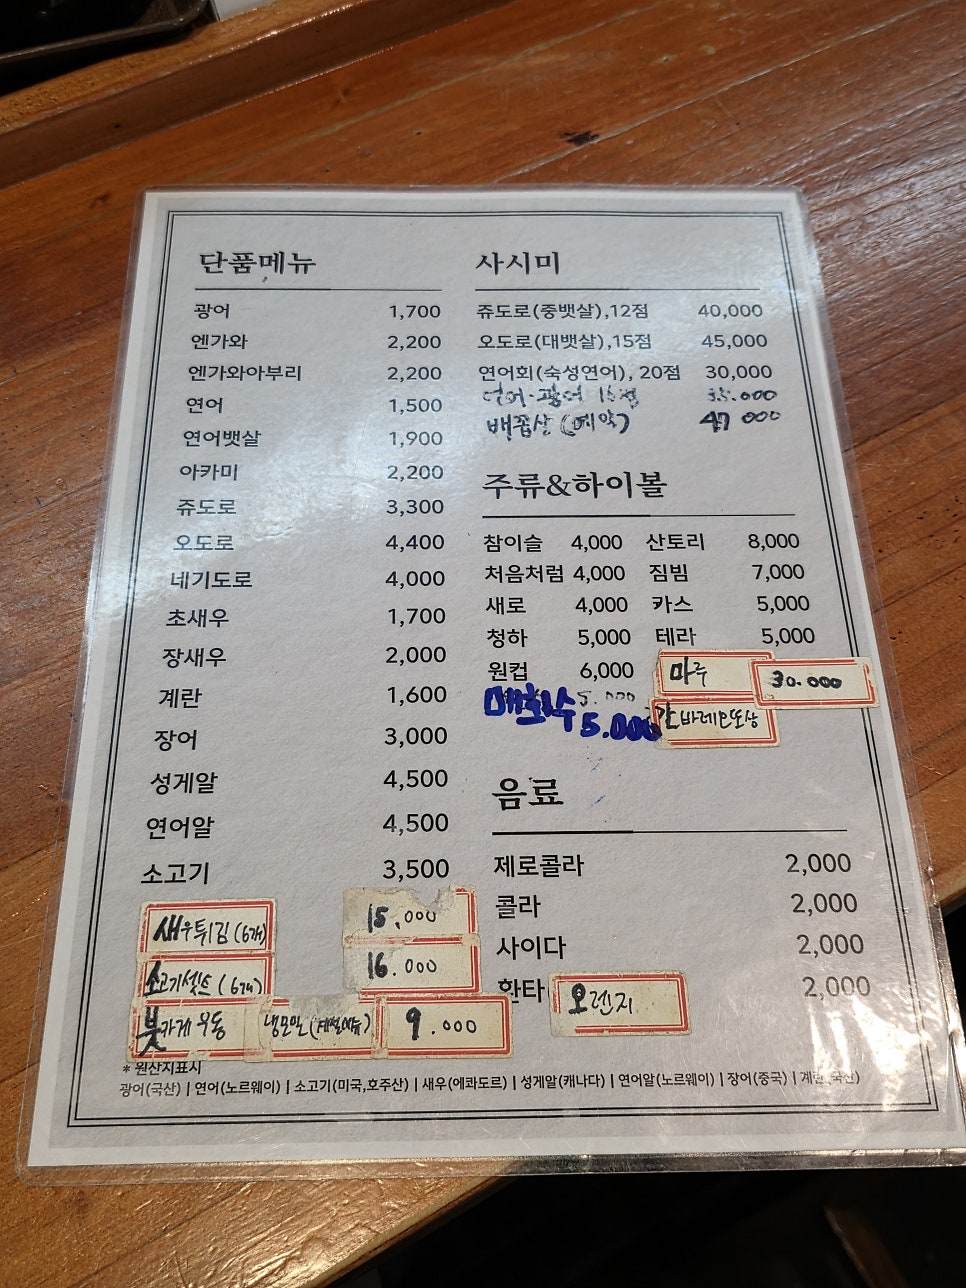 단품메뉴
광어 1,700
엔가와 2,200
엔가와아부리 2,200
연어 1,500
연어뱃살 1,900
아카미 2,200
쥬도로 3,300
오도로 4,400
네기도로 4,000
초새우 1,700
장새우 2,000
계란 1,600
장어 3,000
성게알 4,500
연어알 4,500
소고기 3,500
새우튀김(6개) 15,000
소고기셋트(6개) 16.000
붓카케우동 냉모밀(계절메뉴) 9.000
사시미
쥬도로(중뱃살),12점 40,000
오도로(대뱃살),15점 45,000
연어회(숙성연어), 20점 30,000
연어·광어 35.000
배꼽살(예약) 47000
주류&하이볼
참이슬 4,000 산토리 8,000
처음처럼 4,000 짐빔 7,000
새로 4,000 카스 5,000
청하 5,000 테라 5,000
원컵 6,000 마루 30.000
매화수 5.000 간바레오또상
음료
제로콜라 2,000
콜라 2,000
사이다 2,000
환타 오렌지 2,000
* 원산지표시
광어(국산) | 연어(노르웨이) | 소고기(미국,호주산) | 새우(에콰도르) | 성게알(캐나다) | 연어알(노르웨이) | 장어(중국) | 계란(국산)